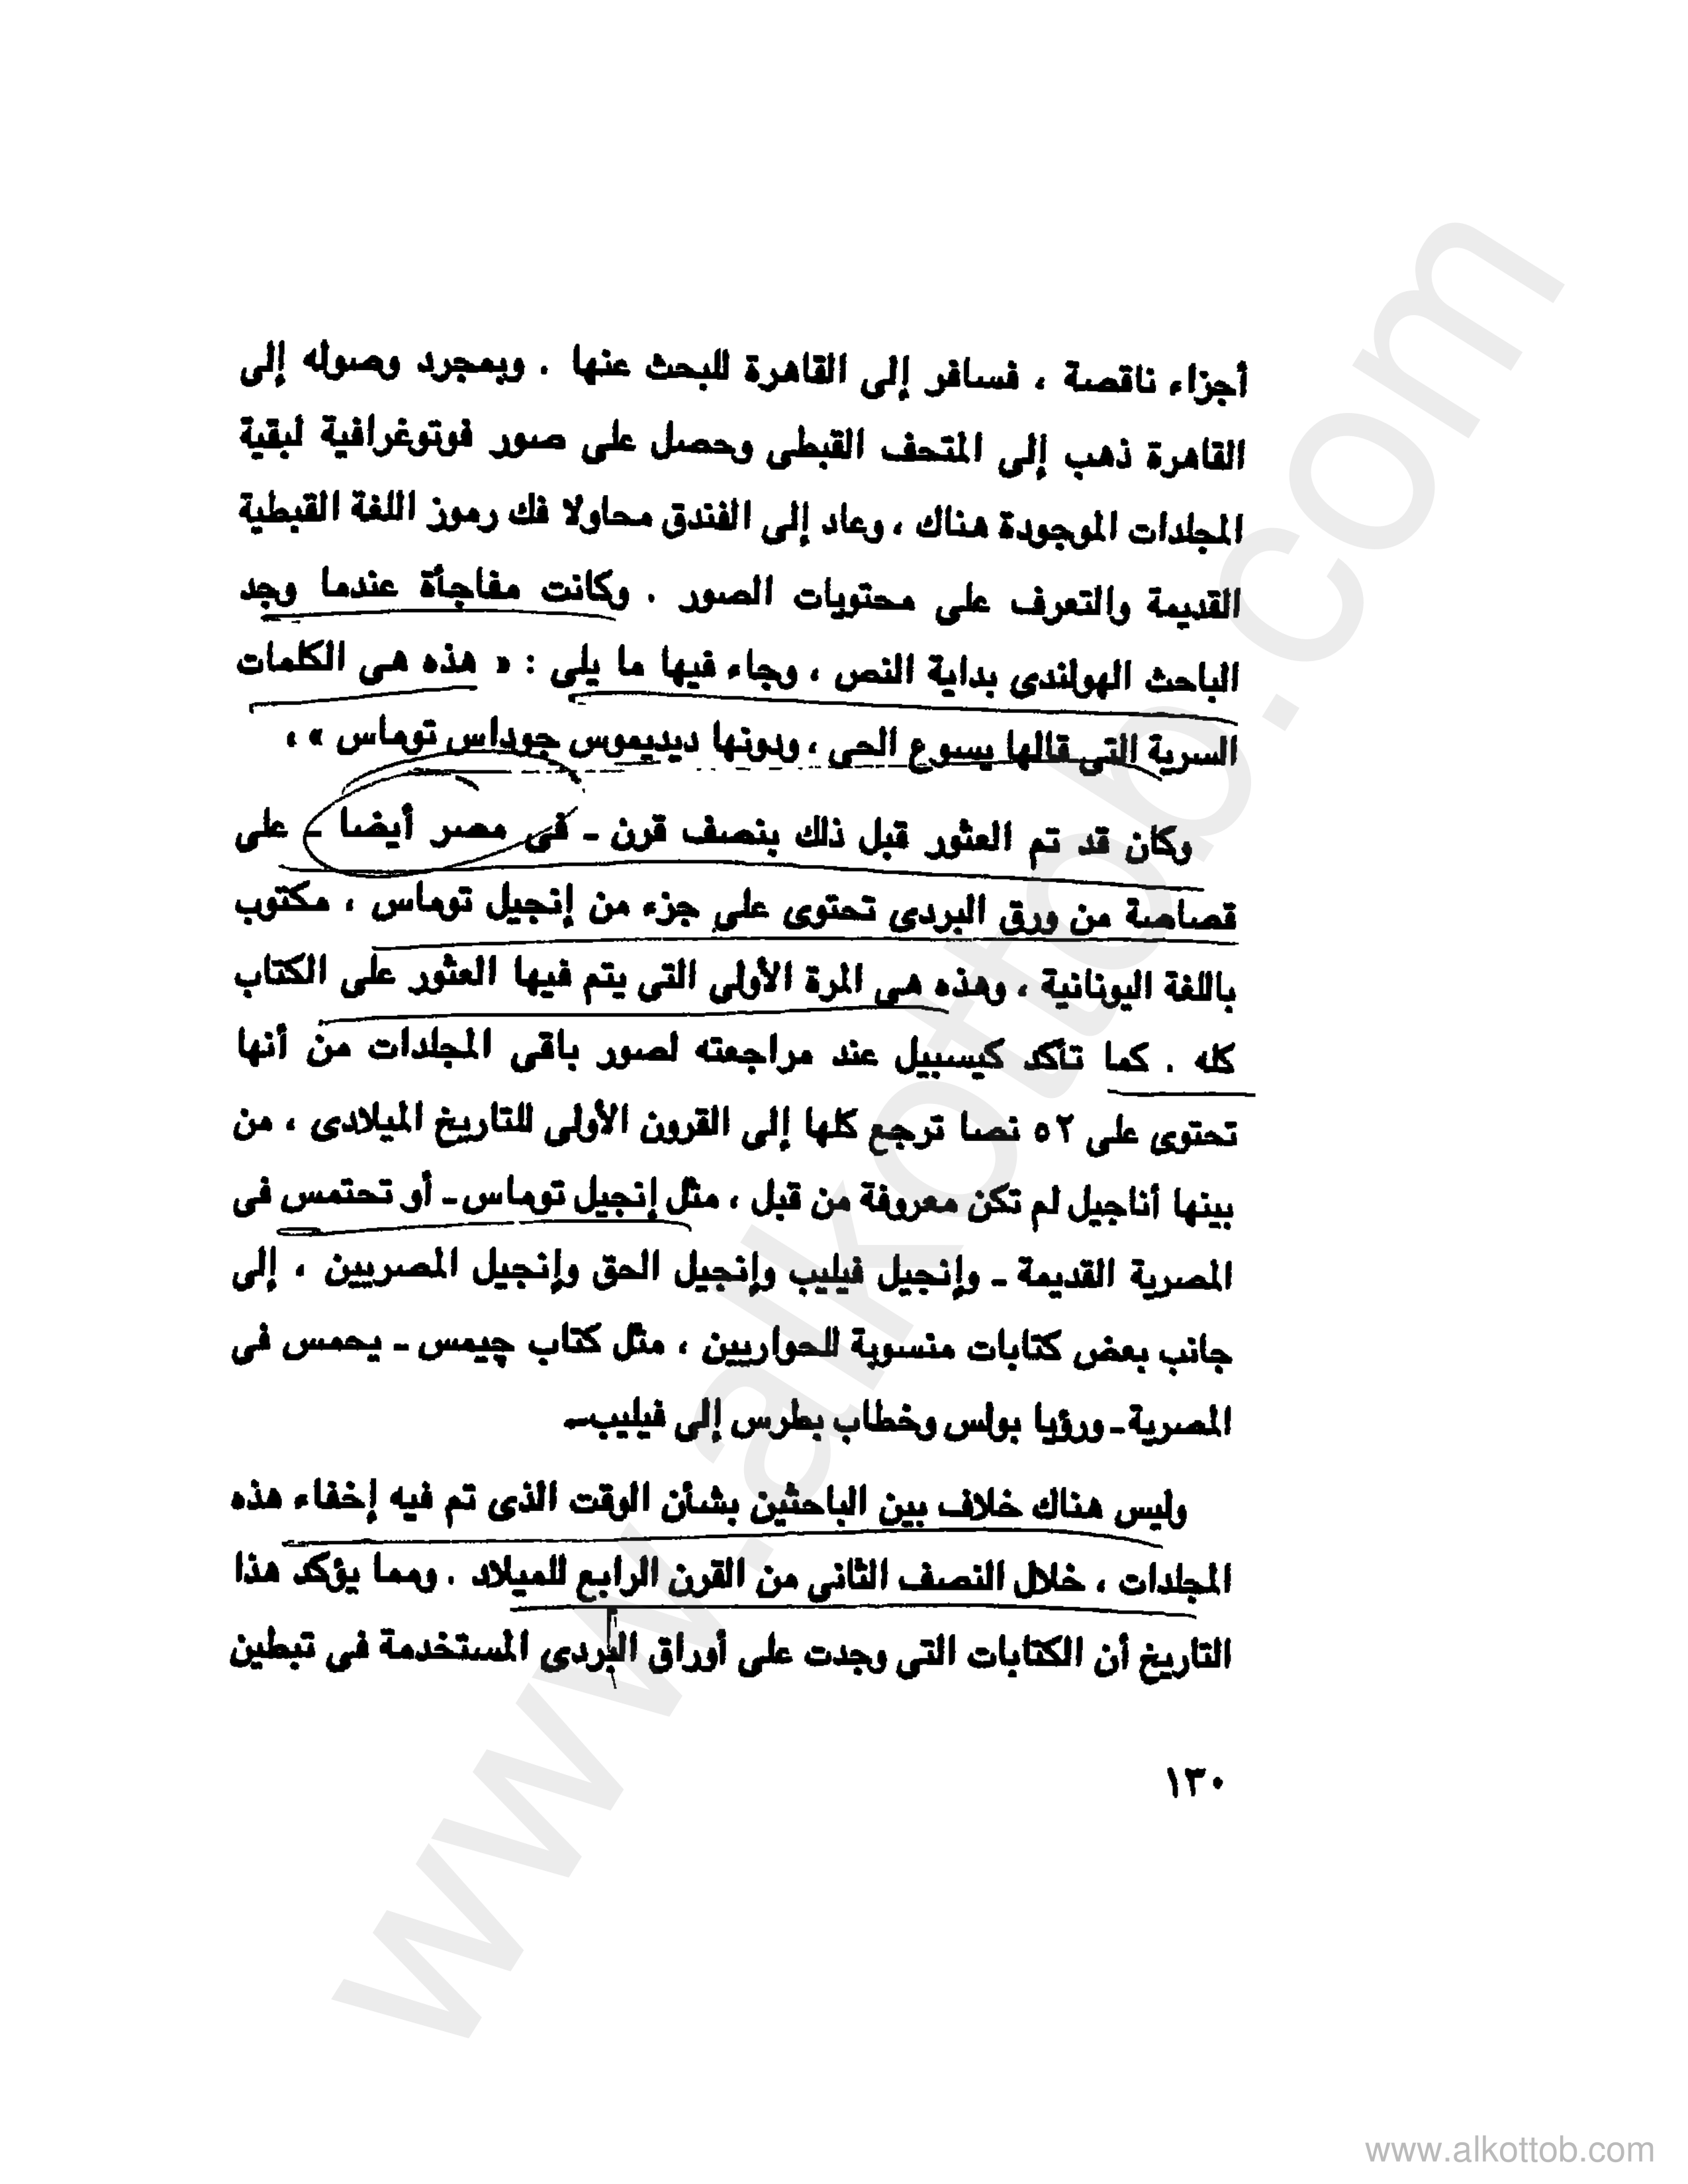 أجزاء ناقصة ، فسافر إلى القاهرة للبحث عنها . وبمجرد وصوله إلى
القاهرة ذهب إلى المتحف القبطى وحصل على صور فوتوغرافية لبقية
المجلدات الموجودة هناك ، وعاد إلى الفندق محاولا فك رموز اللغة القبطية
القديمة والتعرف على محتويات الصور . وكانت مفاجأة عندما وجد
الباحث الهولندى بداية النص ، وجاء فيها ما يلى : « هذه هى الكلمات
السرية التى قالها يسوع الحى ، ودونها ديديموس جوداس توماس » ،
وكان قد تم العثور قبل ذلك بنصف قرن ـ فى مصر أيضا ـ على
قصاصة من ورق البردى تحتوى على جزء من إنجيل توماس ، مكتوب
باللغة اليونانية ، وهذه هى المرة الأولى التى يتم فيها العثور على الكتاب
كله . كما تأكد كيسبيل عند مراجعته لصور باقى المجلدات من أنها
تحتوى على ٥٢ نصا ترجع كلها إلى القرون الأولى للتاريخ الميلادى ، من
بينها أناجيل لم تكن معروفة من قبل ، مثل إنجيل توماس ـ أو تحتمس فى
المصرية القديمة ـ وإنجيل فيليب وإنجيل الحق وإنجيل المصريين ، إلى
جانب بعض كتابات منسوبة للحواريين ، مثل كتاب چيمس ـ يحمس فى
المصرية ـ ورؤيا بولس وخطاب بطرس إلى فيليب ــ
وليس هناك خلاف بين الباحثين بشأن الوقت الذى تم فيه إخفاء هذه
المجلدات ، خلال النصف الثانى من القرن الرابع للميلاد . ومما يؤكد هذا
التاريخ أن الكتابات التى وجدت على أوراق البردى المستخدمة فى تبطين
١٣٠
www.alkottob.com
www.alkottob.com